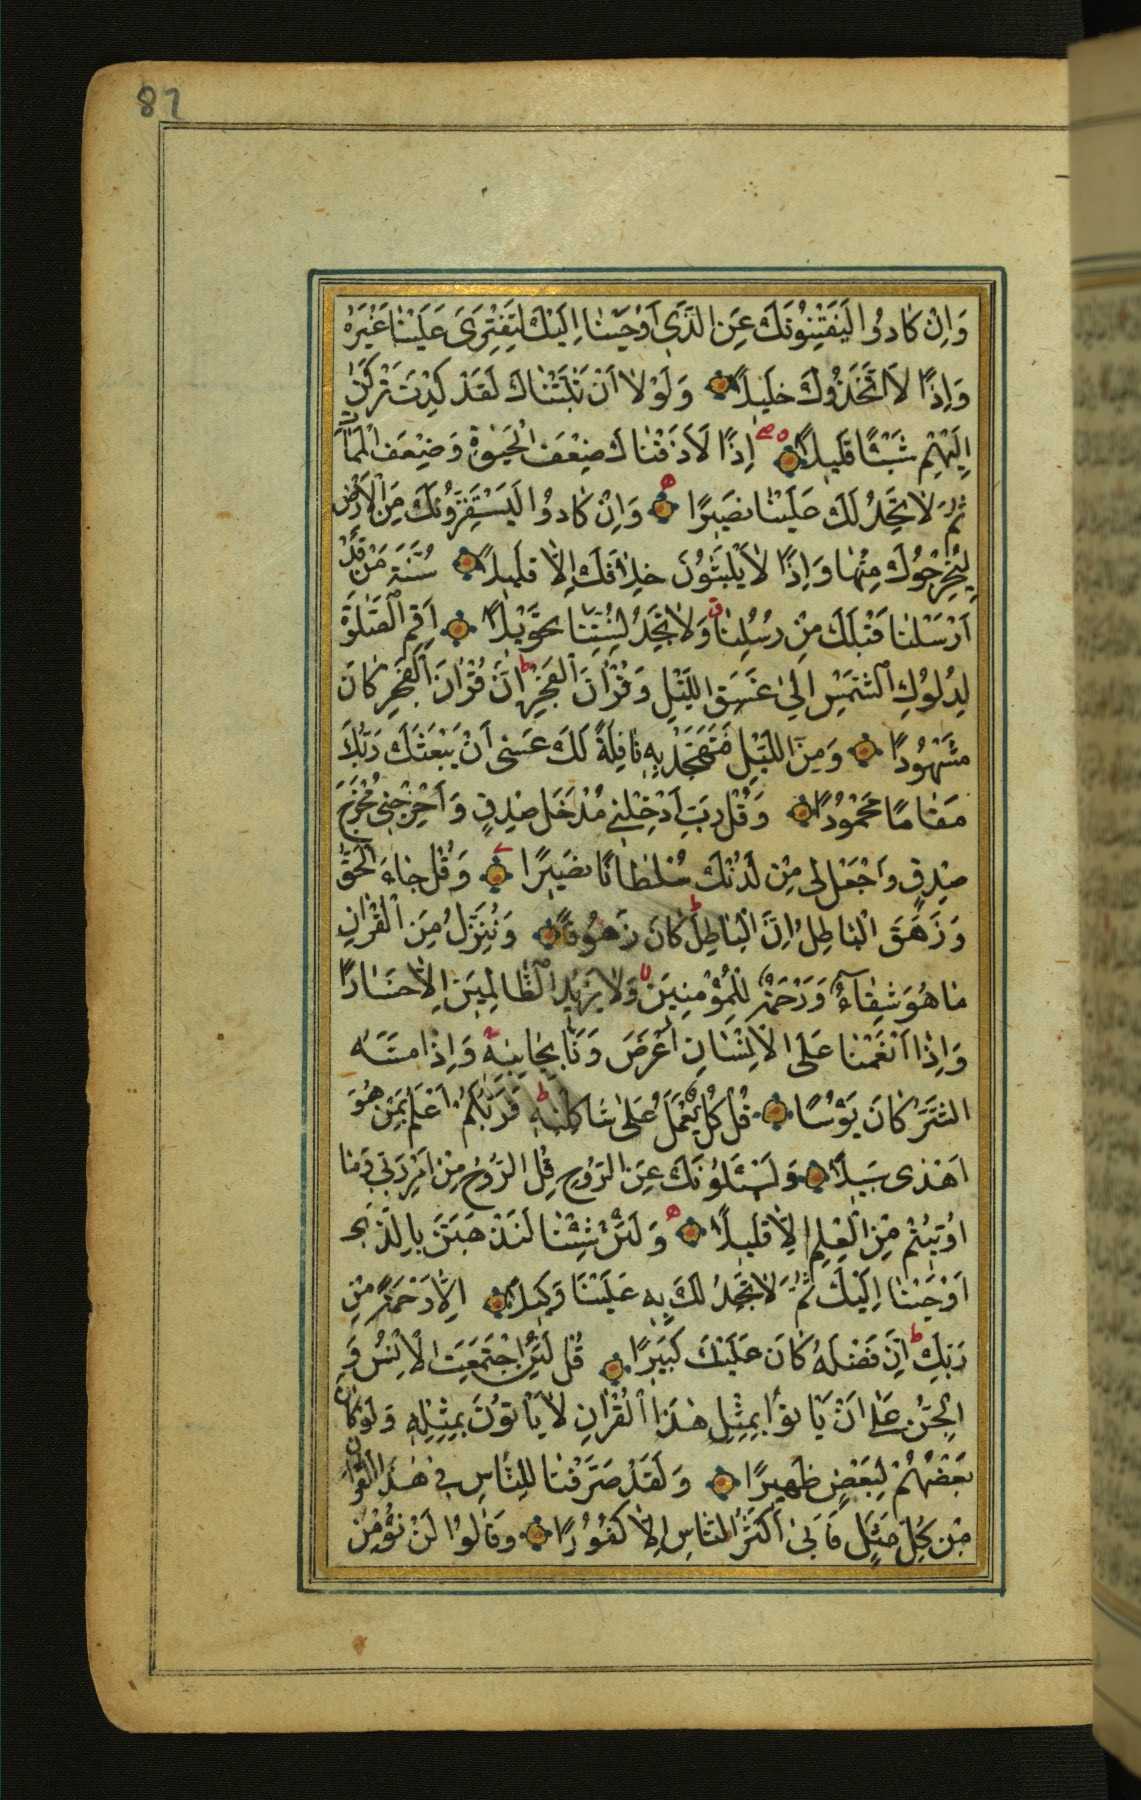 87
وَاِنْ كَادُوا لَيَفْتِنُونَكَ عَنِ الَّذٖى اَوْحَيْنَا اِلَيْكَ لِتَفْتَرِىَ عَلَيْنَا غَيْرَهُ
وَاِذًا لَاتَّخَذُوكَ خَلٖيلًا وَلَوْلَا اَنْ ثَبَّتْنَاكَ لَقَدْ كِدْتَ تَرْكَنُ
اِلَيْهِمْ شَيْئًا قَلٖيلًا اِذًا لَاَذَقْنَاكَ ضِعْفَ الْحَيٰوةِ وَضِعْفَ الْمَمَاتِ
ثُمَّ لَا تَجِدُ لَكَ عَلَيْنَا نَصٖيرًا وَاِنْ كَادُوا لَيَسْتَفِزُّونَكَ مِنَ الْاَرْضِ
لِيُخْرِجُوكَ مِنْهَا وَاِذًا لَا يَلْبَثُونَ خِلَافَكَ اِلَّا قَلٖيلًا سُنَّةَ مَنْ قَدْ
اَرْسَلْنَا قَبْلَكَ مِنْ رُسُلِنَا وَلَا تَجِدُ لِسُنَّتِنَا تَحْوٖيلًا اَقِمِ الصَّلٰوةَ
لِدُلُوكِ الشَّمْسِ اِلٰى غَسَقِ اللَّيْلِ وَقُرْاٰنَ الْفَجْرِ اِنَّ قُرْاٰنَ الْفَجْرِ كَانَ
مَشْهُودًا وَمِنَ اللَّيْلِ فَتَهَجَّدْ بِهٖ نَافِلَةً لَكَ عَسٰى اَنْ يَبْعَثَكَ رَبُّكَ
مَقَامًا مَحْمُودًا وَقُلْ رَبِّ اَدْخِلْنٖى مُدْخَلَ صِدْقٍ وَاَخْرِجْنٖى مُخْرَجَ
صِدْقٍ وَاجْعَلْ لٖى مِنْ لَدُنْكَ سُلْطَانًا نَصٖيرًا وَقُلْ جَاءَ الْحَقُّ
وَزَهَقَ الْبَاطِلُ اِنَّ الْبَاطِلَ كَانَ زَهُوقًا وَنُنَزِّلُ مِنَ الْقُرْاٰنِ
مَا هُوَ شِفَآءٌ وَرَحْمَةٌ لِلْمُؤْمِنٖينَ وَلَا يَزٖيدُ الظَّالِمٖينَ اِلَّا خَسَارًا
وَاِذَا اَنْعَمْنَا عَلَى الْاِنْسَانِ اَعْرَضَ وَنَاٰ بِجَانِبِهٖ وَاِذَا مَسَّهُ
الشَّرُّ كَانَ يَؤُسًا قُلْ كُلٌّ يَعْمَلُ عَلٰى شَاكِلَتِهٖ فَرَبُّكُمْ اَعْلَمُ بِمَنْ هُوَ
اَهْدٰى سَبٖيلًا وَيَسْئَلُونَكَ عَنِ الرُّوحِ قُلِ الرُّوحُ مِنْ اَمْرِ رَبّٖى وَمَا
اُوتٖيتُمْ مِنَ الْعِلْمِ اِلَّا قَلٖيلًا وَلَئِنْ شِئْنَا لَنَذْهَبَنَّ بِالَّذٖى
اَوْحَيْنَا اِلَيْكَ ثُمَّ لَا تَجِدُ لَكَ بِهٖ عَلَيْنَا وَكٖيلًا اِلَّا رَحْمَةً مِنْ
رَبِّكَ اِنَّ فَضْلَهُ كَانَ عَلَيْكَ كَبٖيرًا قُلْ لَئِنِ اجْتَمَعَتِ الْاِنْسُ وَ
الْجِنُّ عَلٰى اَنْ يَاْتُوا بِمِثْلِ هٰذَا الْقُرْاٰنِ لَا يَاْتُونَ بِمِثْلِهٖ وَلَوْ كَانَ
بَعْضُهُمْ لِبَعْضٍ ظَهٖيرًا وَلَقَدْ صَرَّفْنَا لِلنَّاسِ فٖى هٰذَا الْقُرْاٰنِ
مِنْ كُلِّ مَثَلٍ فَاَبٰى اَكْثَرُ النَّاسِ اِلَّا كُفُورًا وَقَالُوا لَنْ نُؤْمِنَ